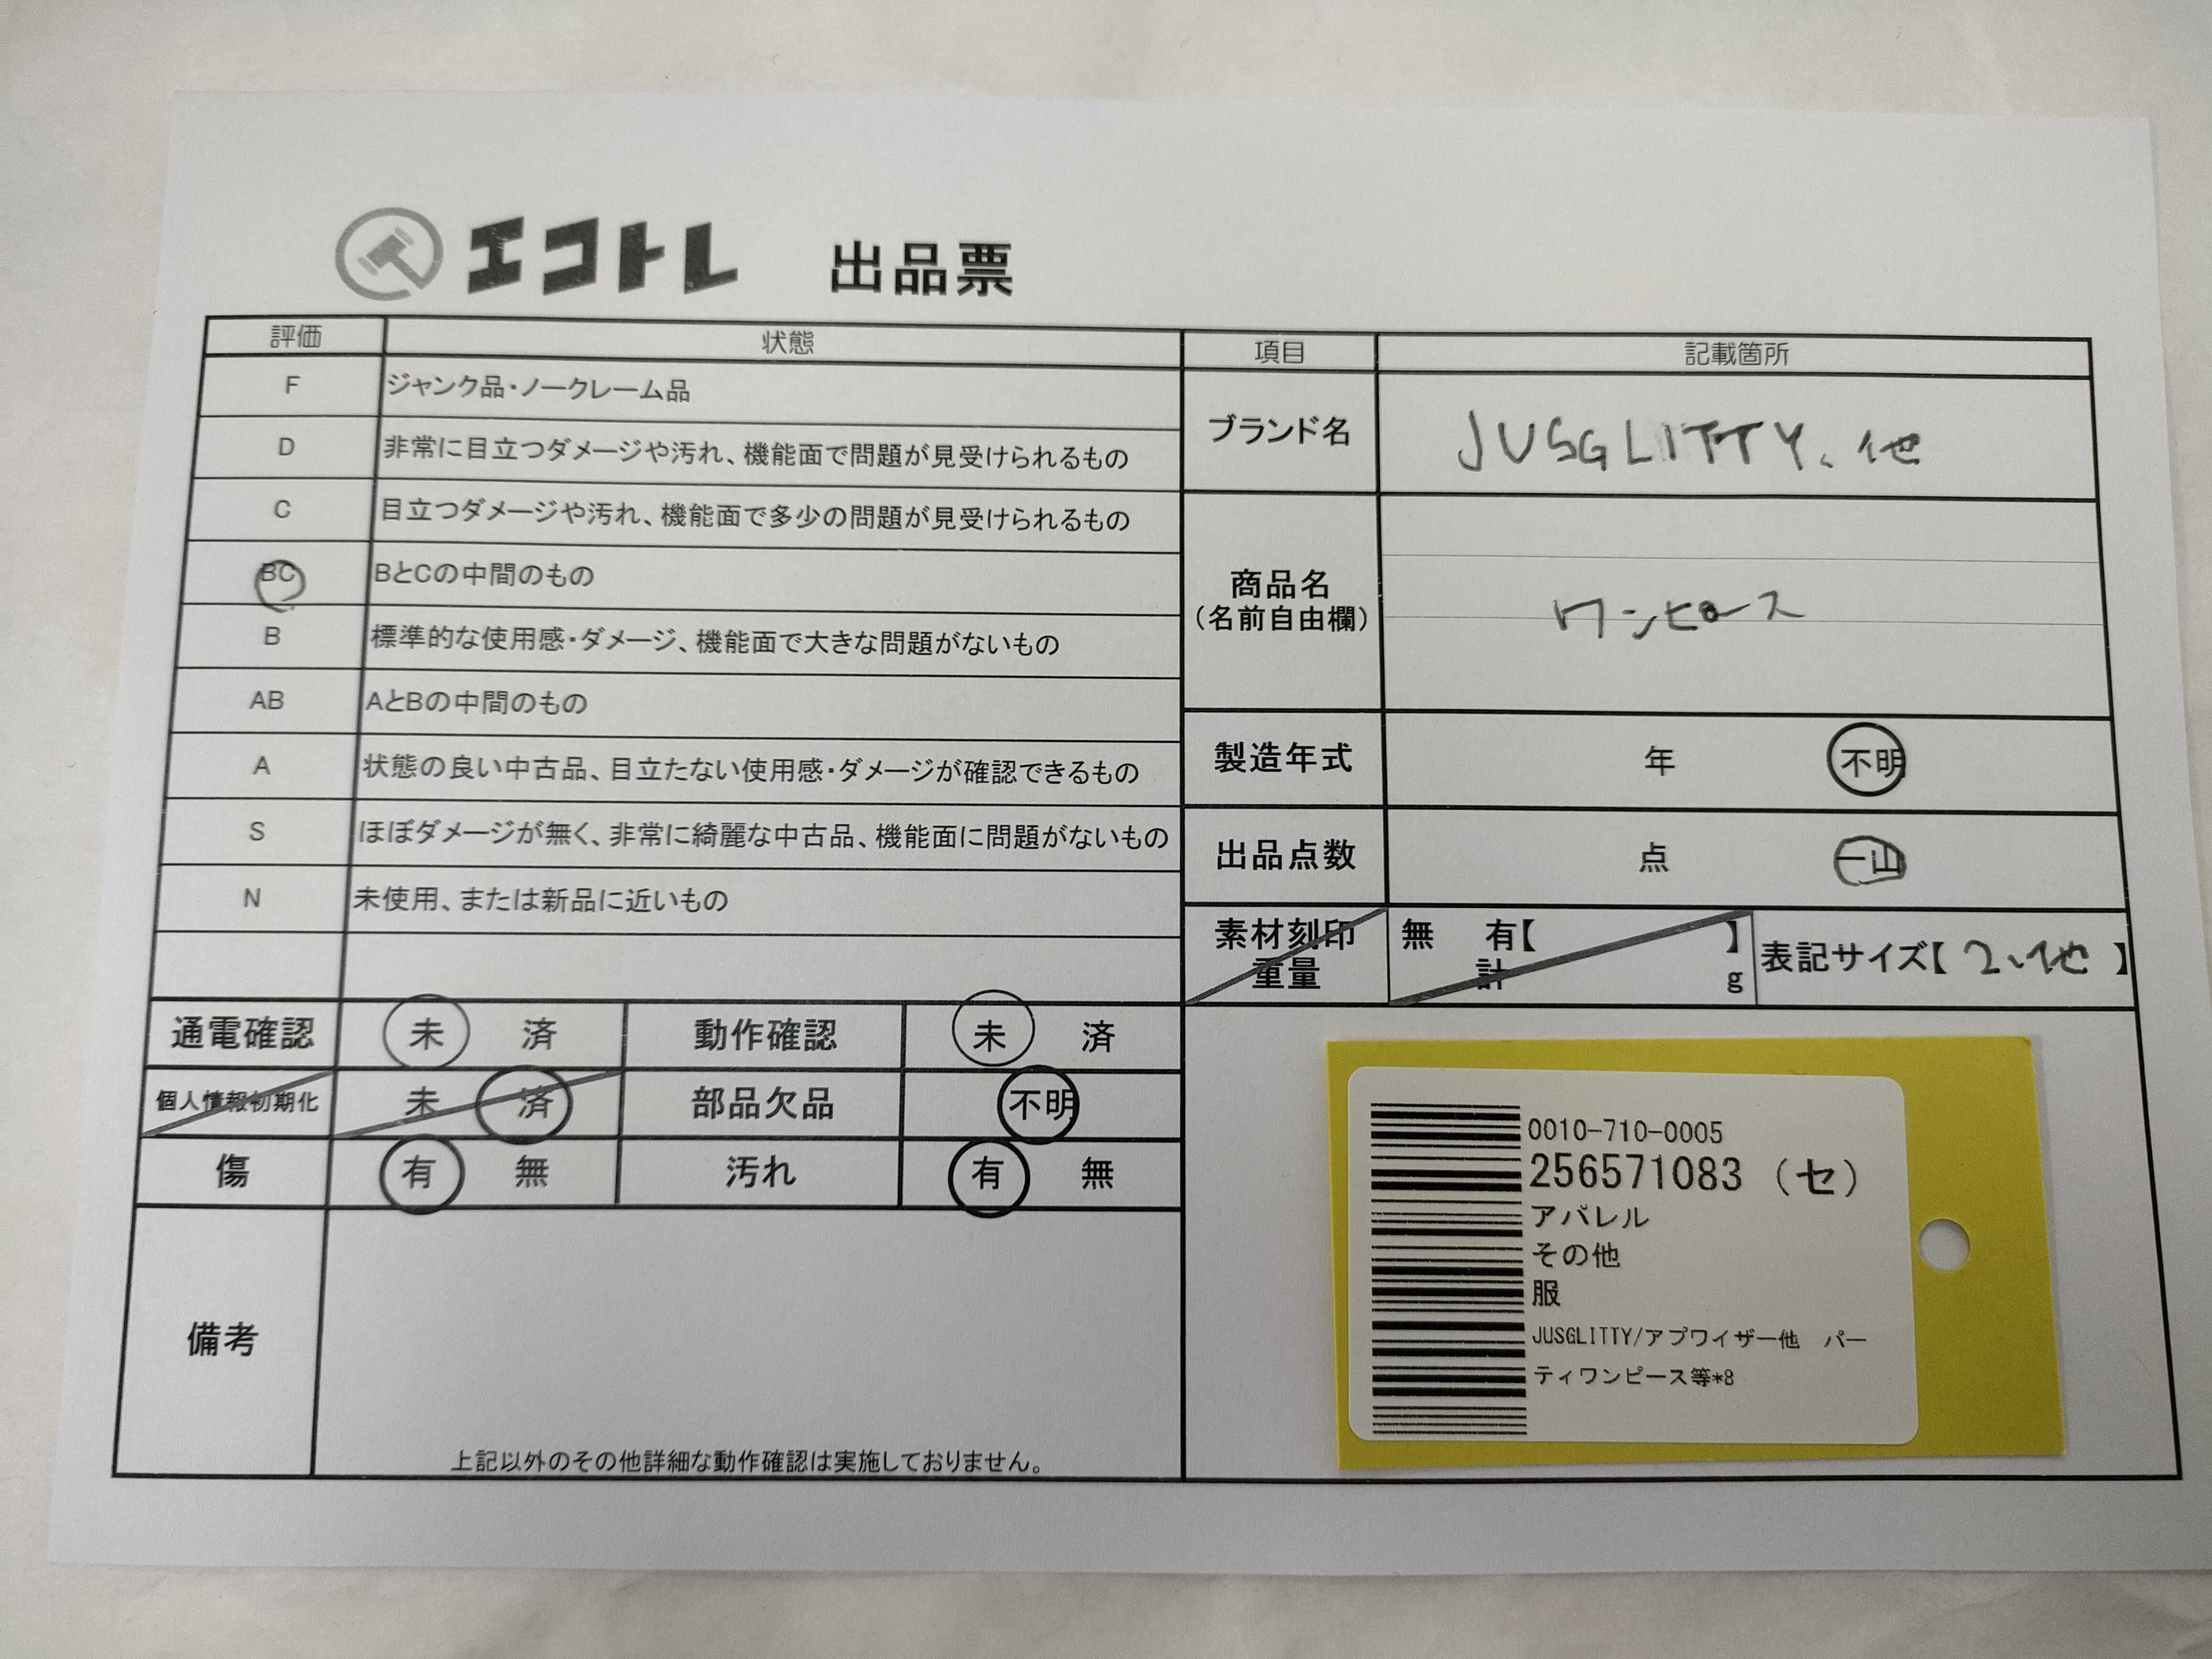 エコトレ 出品票
評価 状態
F ジャンク品・ノークレーム品
D 非常に目立つダメージや汚れ、機能面で問題が見受けられるもの
C 目立つダメージや汚れ、機能面で多少の問題が見受けられるもの
BC BとCの中間のもの
B 標準的な使用感・ダメージ、機能面で大きな問題がないもの
AB AとBの中間のもの
A 状態の良い中古品、目立たない使用感・ダメージが確認できるもの
S ほぼダメージが無く、非常に綺麗な中古品、機能面に問題がないもの
N 未使用、または新品に近いもの
通電確認 未 済 動作確認 未 済
個人情報初期化 未 済 部品欠品 不明
傷 有 無 汚れ 有 無
備考
上記以外のその他詳細な動作確認は実施しておりません。
項目 記載箇所
ブランド名 JUSGLITTY、他
商品名
(名前自由欄)
ワンピース
製造年式 年 不明
出品点数 点 一山
素材刻印 無 有【 】
重量 計 g
表記サイズ【 2、他 】
0010-710-0005
256571083 (セ)
アパレル
その他
服
JUSGLITTY/アプワイザー他 パー
ティワンピース等*8